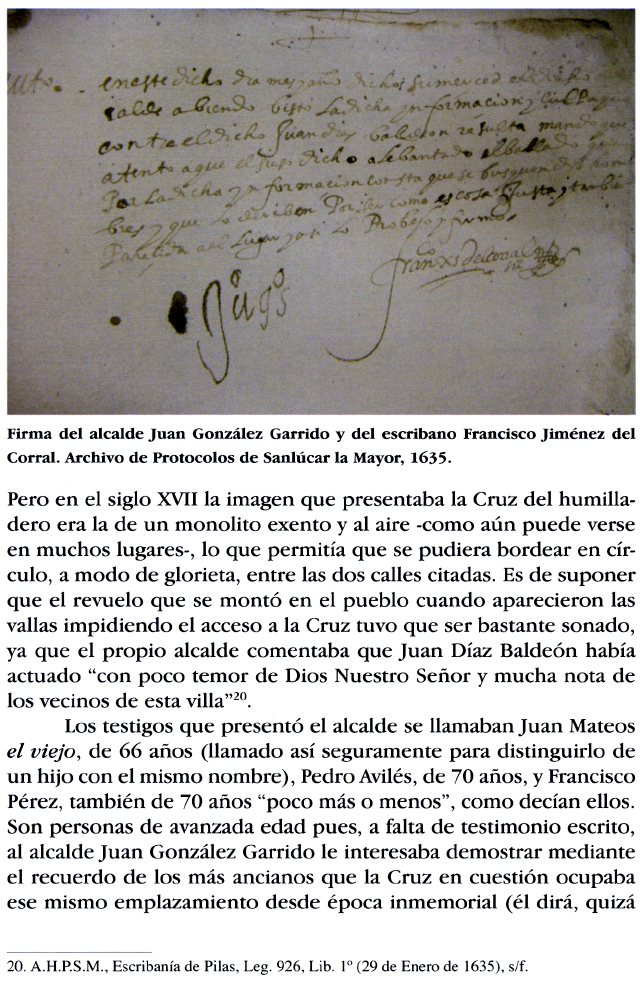 en este dicho dia mes y año dichos su merced el dicho
alcalde abiendo visto la dicha ynformacion y culpa que
contra el dicho Juan dias valdeon resulta mando que
atento a que el suso dicho a lebantado el ballado que
Por la dicha ynformacion consta que se busquen dos hom
bres y que lo derriben Por ser como es cosa Justa y
del Lugar y asi lo Probeyo y firmo
Firma del alcalde Juan González Garrido y del escribano Francisco Jiménez del
Corral. Archivo de Protocolos de Sanlúcar la Mayor, 1635.
Pero en el siglo XVII la imagen que presentaba la Cruz del humilla-
dero era la de un monolito exento y al aire -como aún puede verse
en muchos lugares-, lo que permitía que se pudiera bordear en cír-
culo, a modo de glorieta, entre las dos calles citadas. Es de suponer
que el revuelo que se montó en el pueblo cuando aparecieron las
vallas impidiendo el acceso a la Cruz tuvo que ser bastante sonado,
ya que el propio alcalde comentaba que Juan Díaz Baldeón había
actuado “con poco temor de Dios Nuestro Señor y mucha nota de
los vecinos de esta villa”20.
Los testigos que presentó el alcalde se llamaban Juan Mateos
el viejo, de 66 años (llamado así seguramente para distinguirlo de
un hijo con el mismo nombre), Pedro Avilés, de 70 años, y Francisco
Pérez, también de 70 años “poco más o menos”, como decían ellos.
Son personas de avanzada edad pues, a falta de testimonio escrito,
al alcalde Juan González Garrido le interesaba demostrar mediante
el recuerdo de los más ancianos que la Cruz en cuestión ocupaba
ese mismo emplazamiento desde época inmemorial (él dirá, quizá
20. A.H.P.S.M., Escribanía de Pilas, Leg. 926, Lib. 1º (29 de Enero de 1635), s/f.